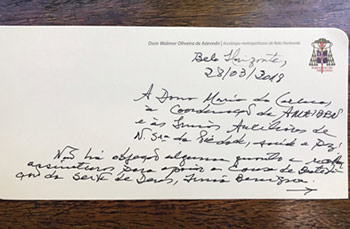 Dom Walmor Oliveira de Azevedo | Arcebispo metropolitano de Belo Horizonte
Belo Horizonte,
28/03/2018
A Dona Maria do Carmo,
à Coordenação da
e às Irmãs Auxiliares de
N Sra da Piedade, saúde e paz!
Não há objeção alguma quanto a
assinaturas para apoiar a Causa de
da Serva de Deus, Irmã Benigna.